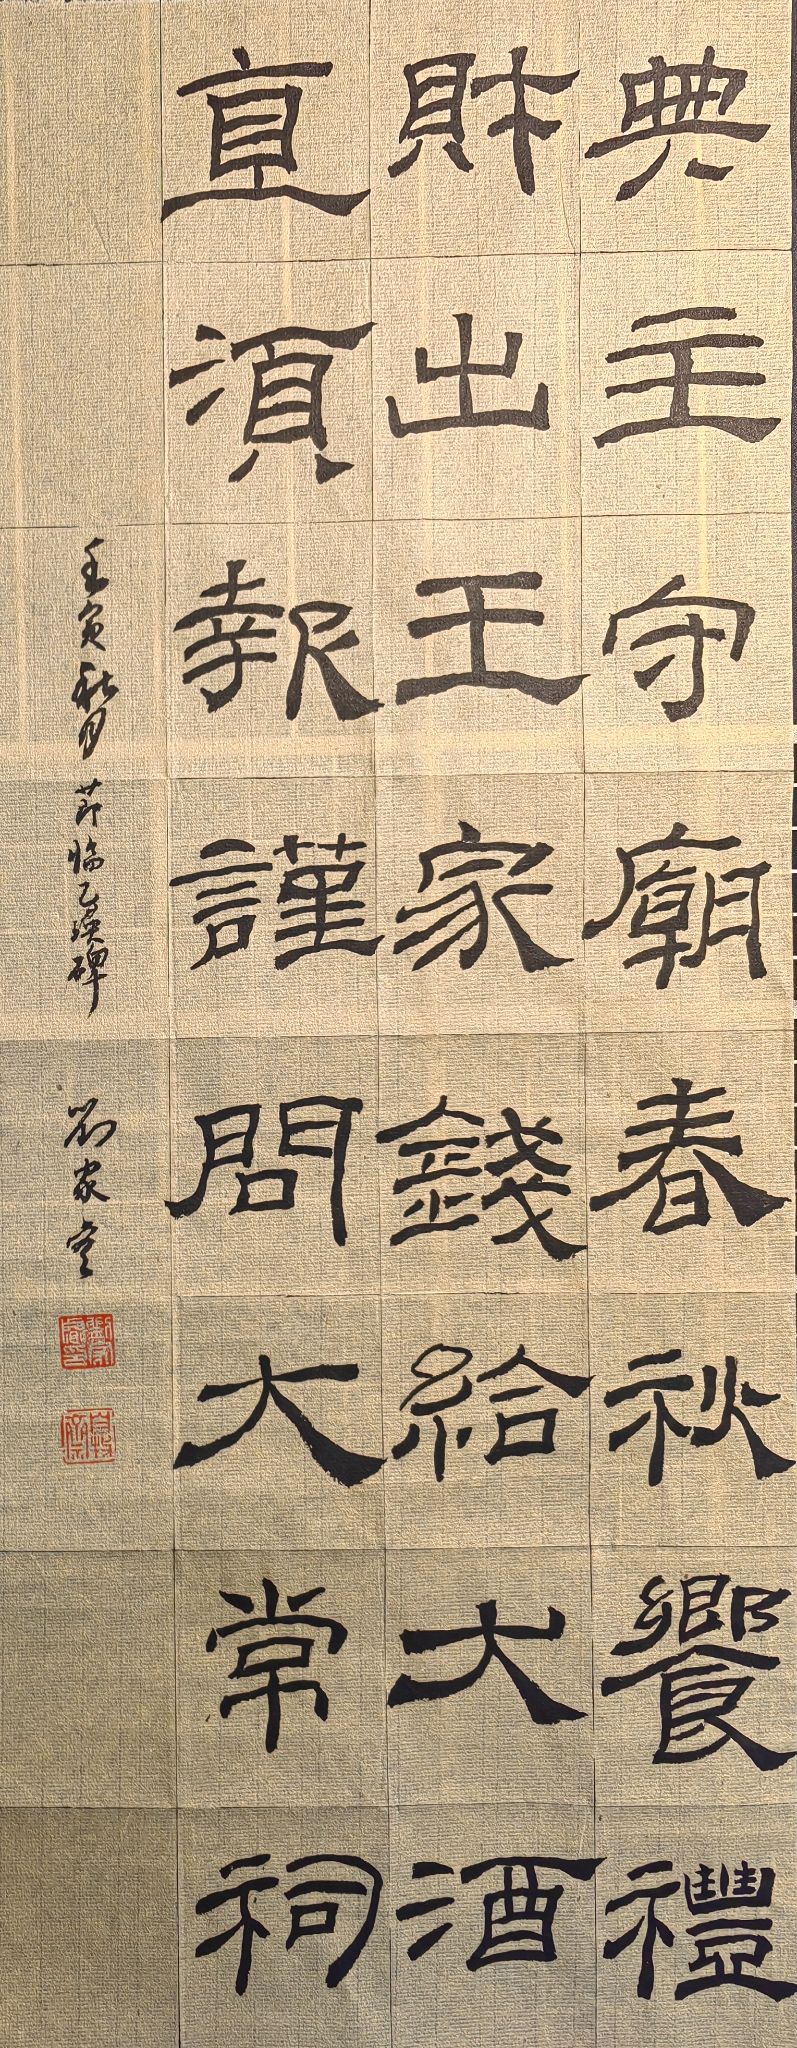 典主守廟春秋饗禮
財出王家錢給大酒
直須報謹問大常祠
壬寅秋月節臨乙瑛碑 劉家